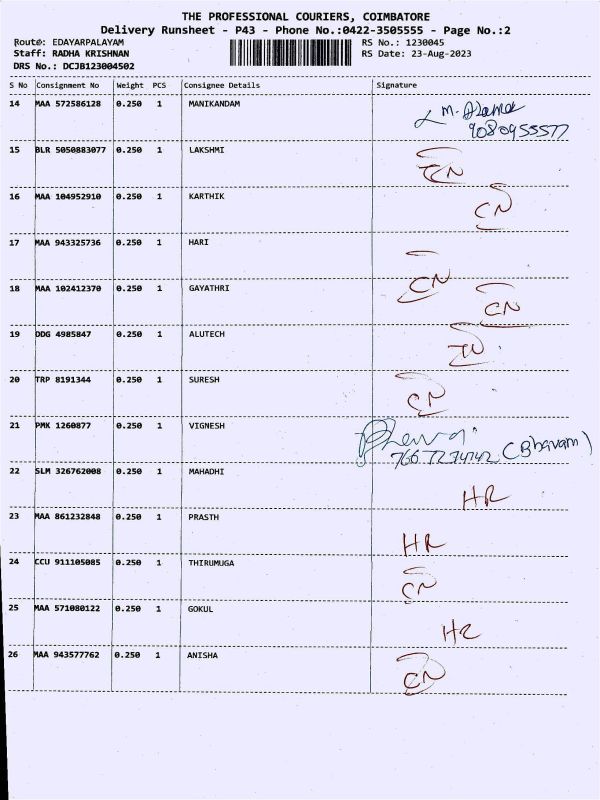 THE PROFESSIONAL COURIERS, COIMBATORE
Delivery Runsheet - P43 - Phone No.:0422-3505555 - Page No.:2
Route: EDAYARPALAYAM RS No.: 1230045
Staff: RADHA KRISHNAN RS Date: 23-Aug-2023
DRS No.: DCJB123004502
S No Consignment No Weight PCS Consignee Details Signature
14 MAA 572586128 0.250 1 MANIKANDAM M.
9080955577
15 BLR 5050883077 0.250 1 LAKSHMI
16 MAA 104952910 0.250 1 KARTHIK CN
17 MAA 943325736 0.250 1 HARI CN
18 MAA 102412370 0.250 1 GAYATHRI CN
19 DDG 4985847 0.250 1 ALUTECH
20 TRP 8191344 0.250 1 SURESH CN
21 PMK 1260877 0.250 1 VIGNESH (Bhavam)
22 SLM 326762008 0.250 1 MAHADHI HR
23 MAA 861232848 0.250 1 PRASTH HR
24 CCU 911105085 0.250 1 THIRUMUGA CN
25 MAA 571080122 0.250 1 GOKUL HR
26 MAA 943577762 0.250 1 ANISHA CN